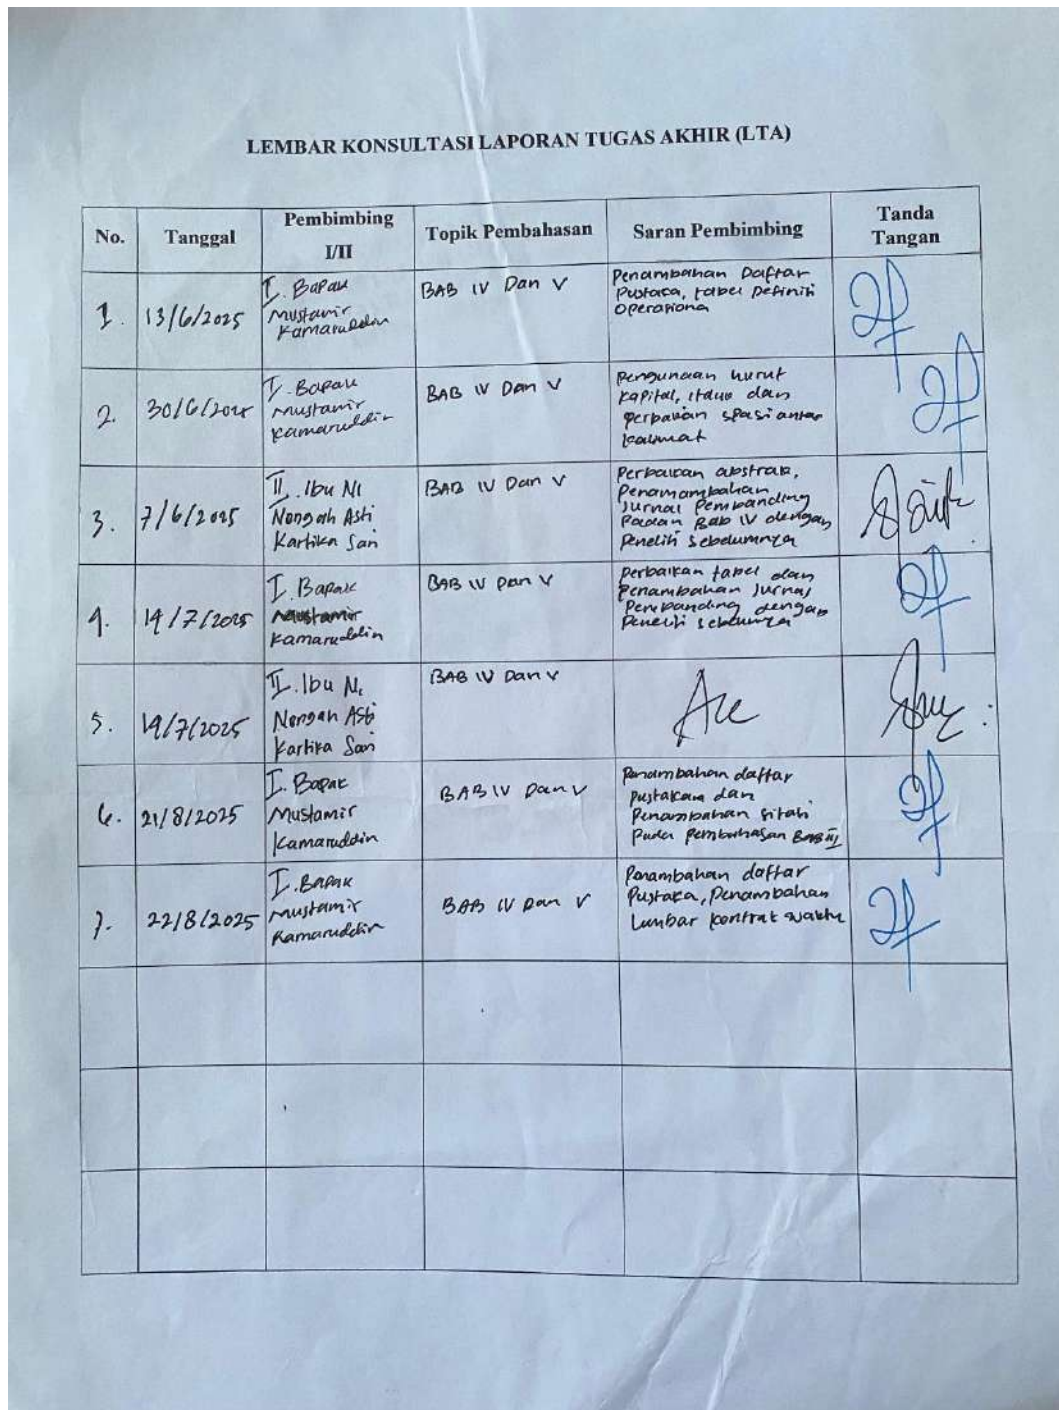 LEMBAR KONSULTASI LAPORAN TUGAS AKHIR (LTA)
No. Tanggal Pembimbing I/II Topik Pembahasan Saran Pembimbing Tanda Tangan
1. 13/6/2025
I. Bapak
Mustamir
Kamaruddin
BAB IV Dan V
Penambahan Daftar
Pustaca, tabel Definisi
Operasiona
2. 30/6/2025
I. Bapak
Mustamir
Kamaruddin
BAB IV Dan V
Pengunaan huruf
Kapital, italic dan
perbaikan spasi antar
kalimat
3. 7/6/2025
II. Ibu Ni
Nengah Asti
Kartika Sari
BAB IV Dan V
Perbaikan abstrak,
Penamambahan
Jurnal Pembanding
Padan Bab IV dengan
Peneliti sebelumnya
4. 14/7/2025
I. Bapak
Mustamir
Kamaruddin
BAB IV Dan V
Perbaikan tabel dan
Penambahan Jurnal
Pembanding dengan
Peneliti sebelumnya
5. 19/7/2025
II. Ibu Ni
Nengah Asti
Kartika Sari
BAB IV Dan V
Acc
6. 21/8/2025
I. Bapak
Mustamir
Kamaruddin
BAB IV Dan V
Penambahan daftar
pustakam dan
Penambahan sitasi
Pada Pembahasan BAB III
7. 22/8/2025
I. Bapak
Mustamir
Kamaruddin
BAB IV Dan V
Penambahan daftar
Pustaka, Penambahan
Lumbar kontrak waktu